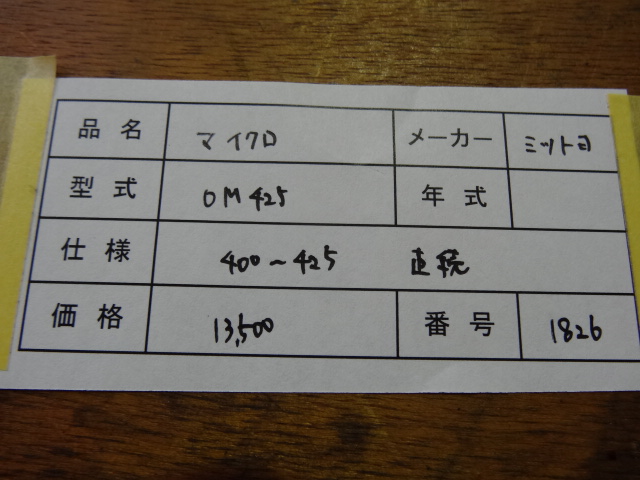 品名 マイクロ メーカー ミツトヨ
型式 OM425 年式
仕様 400～425
価格 13,500 番号 1826